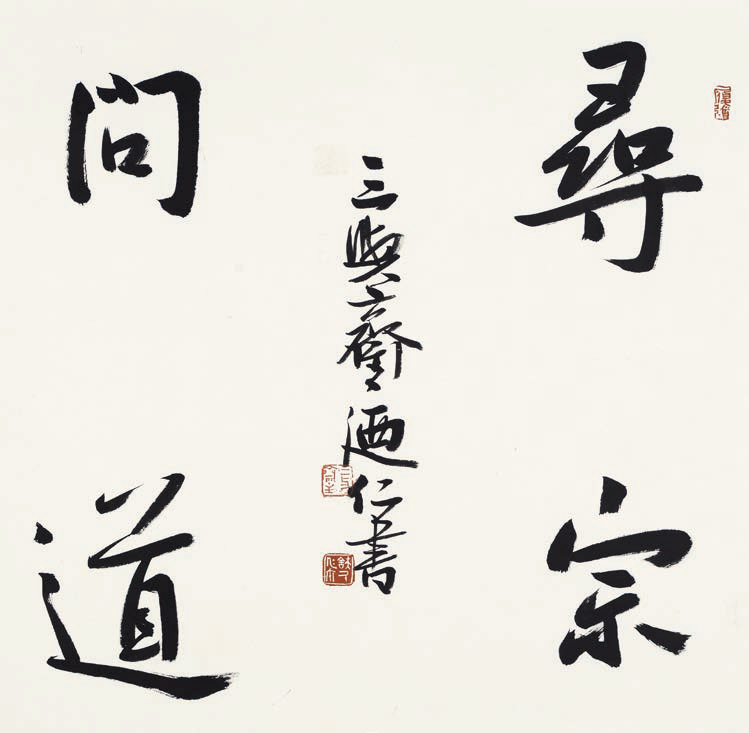 尋宗
問道
三與齋迺仁書